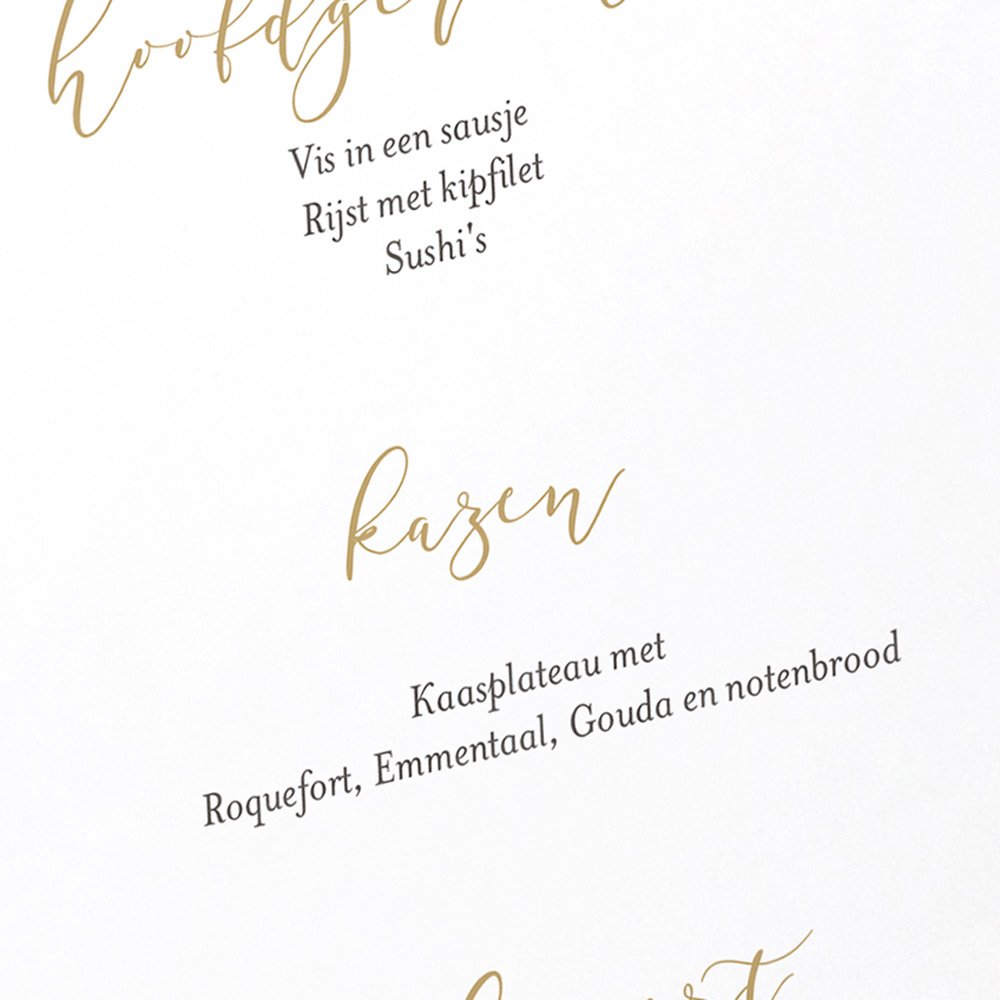 Vis in een sausje
Rijst met kipfilet
Sushi's
kazen
Kaasplateau met
Roquefort, Emmentaal, Gouda en notenbrood